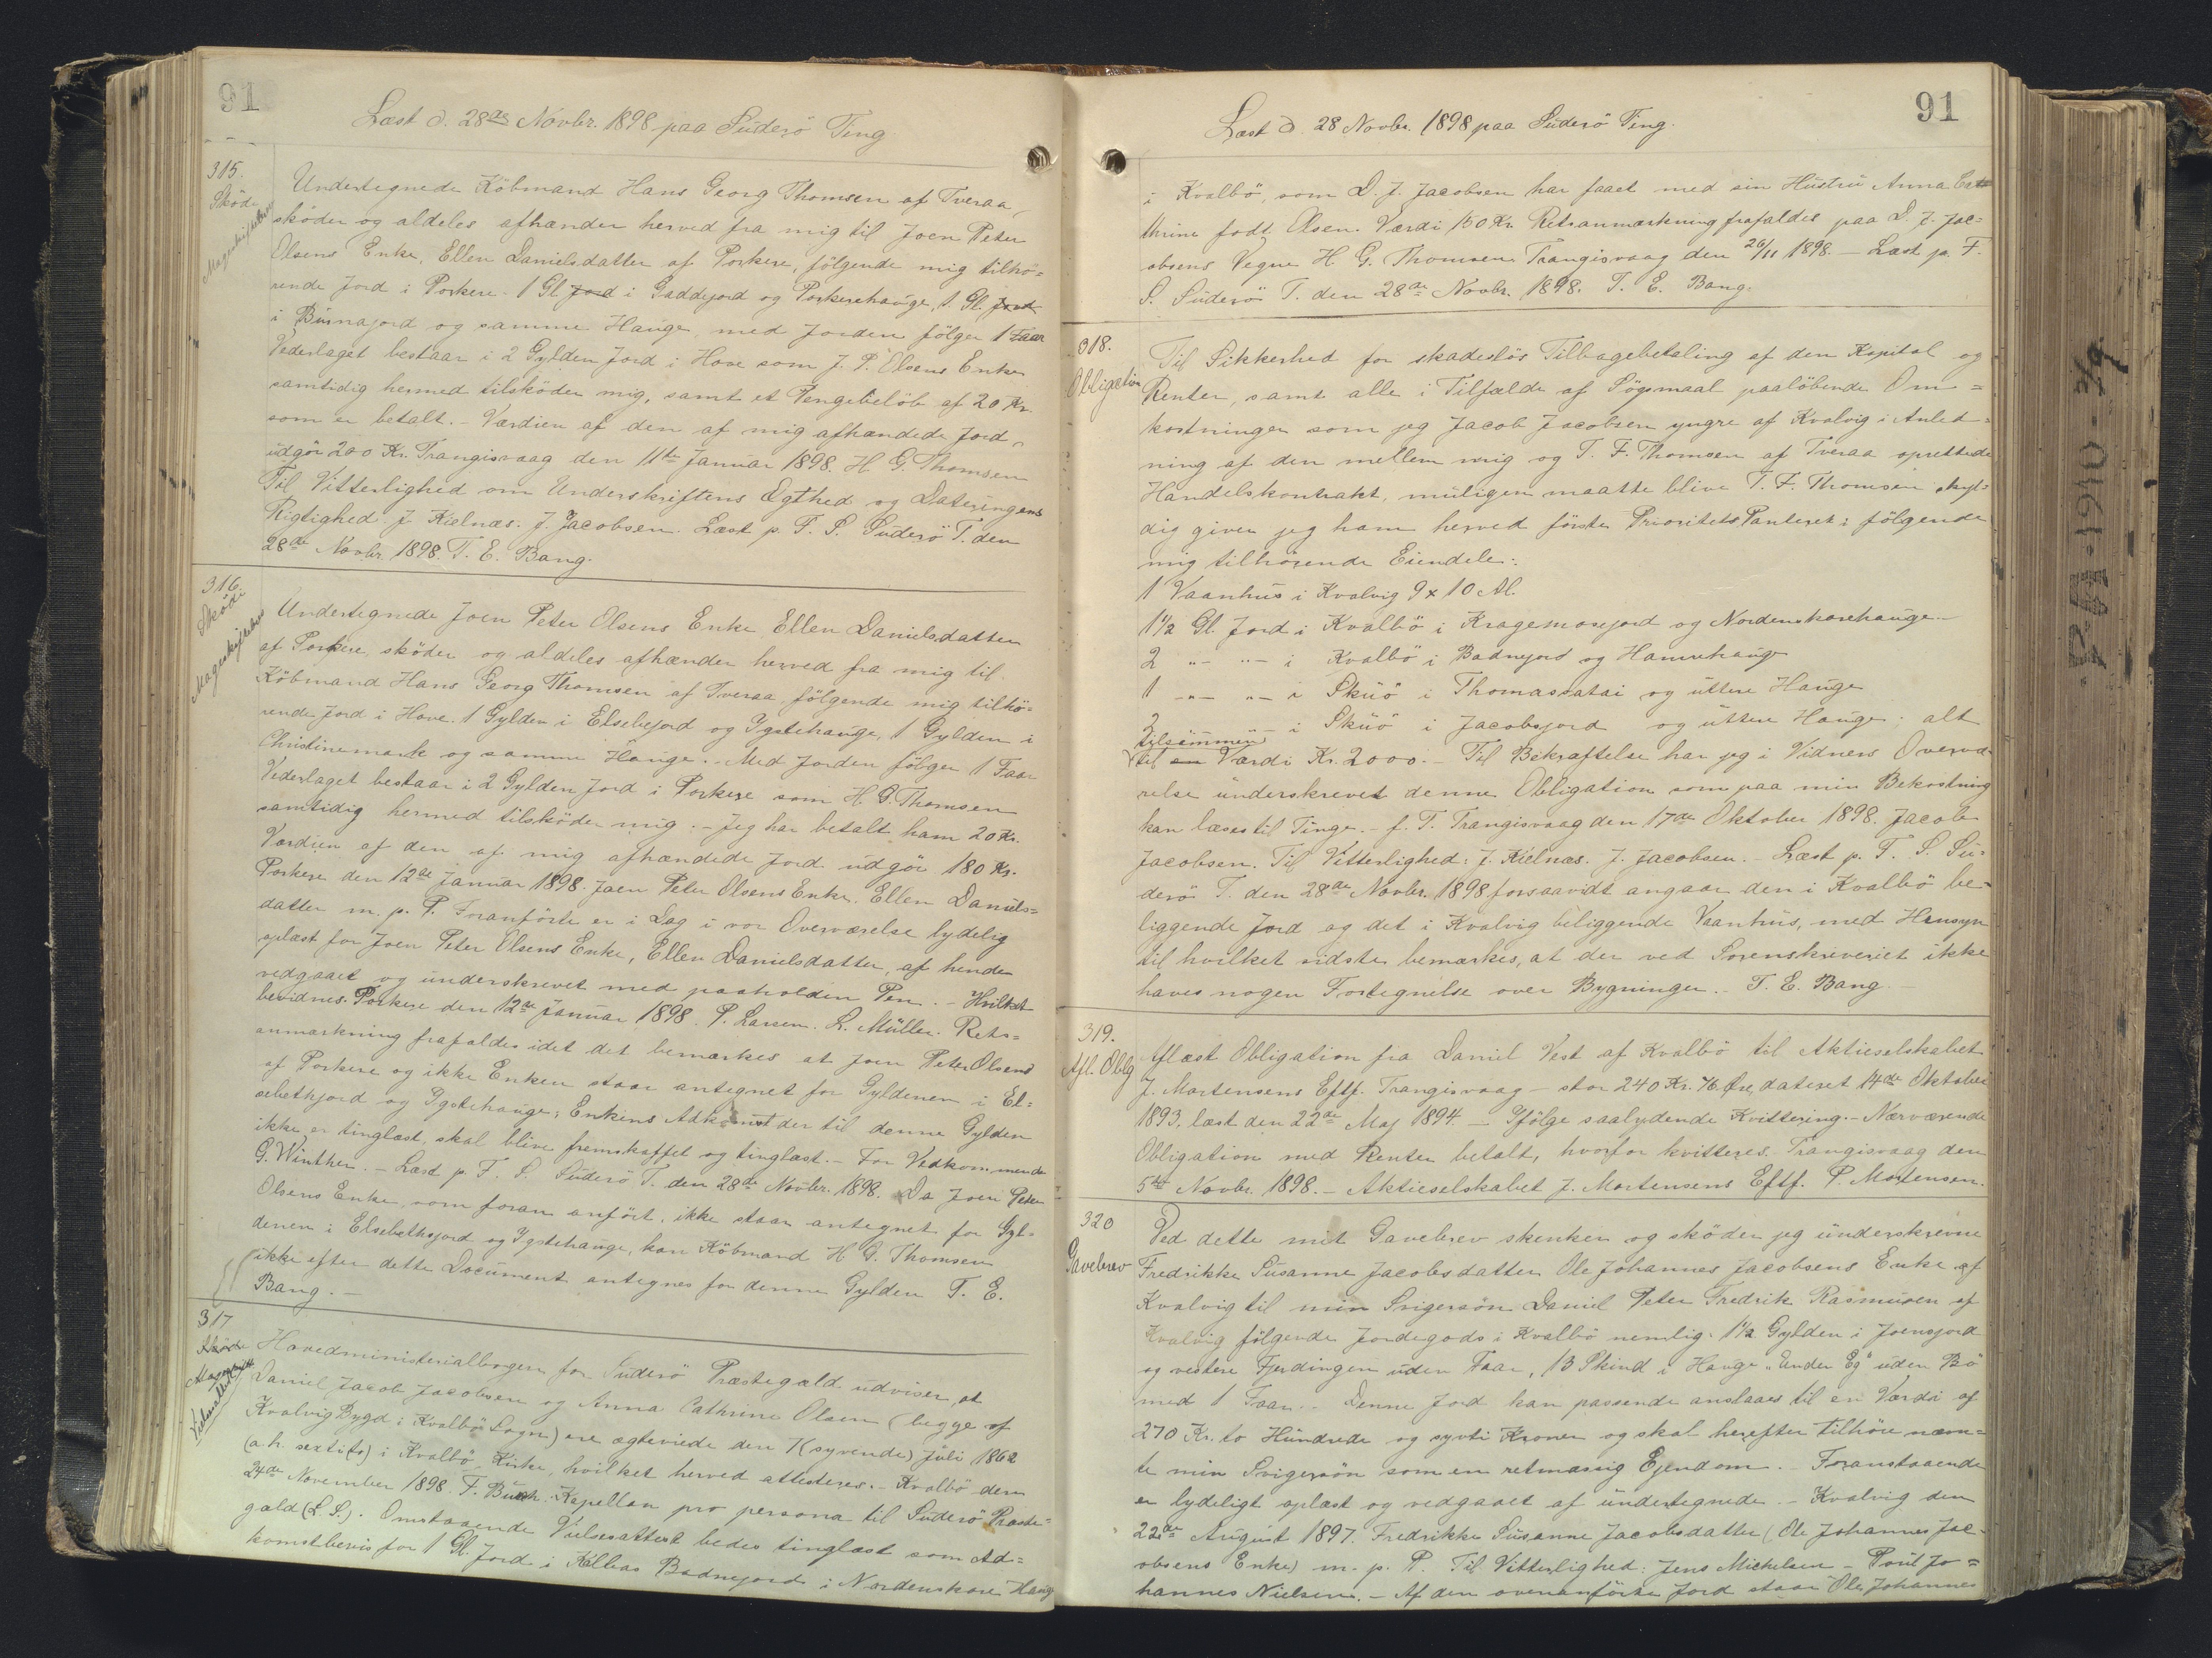 91
Læst d. 28de Novbr. 1898 paa Süderö Ting
315.
Sköde
Mageskiftebrev
Undertegnede Köbmand Hans Georg Thomsen af Tveraa
sköder og aldeles afhænder herved fra mig til Joen Peter
Olsens Enke, Ellen Danielsdatter af Porkere, fölgende mig tilhö=
rende Jord i Porkere. 1 Gl. Jord i Gaddejord og Porkerehauge, 1 Gl. Jord
i Búrnajord og samme Hauge, med Jorden fölger 1 Faar
Vederlaget bestaar i 2 Gylden Jord i Hove som J. P. Olsens Enke
samtidig hermed tilsköder mig, samt et Pengebelöb af 20 Kr.
som er betalt. - Værdien af den af mig afhændede Jord
udgör 200 Kr. Trangisvaag den 11te Januar 1898. H. G. Thomsen
Til Vitterlighed om Underskriftens Ægthed og Dateringens
Rigtighed. J. Kielnæs. J. Jacobsen. Læst p. F. S. Süderö T. den
28de Novbr. 1898. T. E. Bang.
316.
Sköde
Mageskiftebrev
Undertegnede Joen Peter Olsens Enke Ellen Danielsdatter
af Porkere sköder og aldeles afhænder herved fra mig til
Köbmand Hans Georg Thomsen af Tveraa fölgende mig tilhö=
rende Jord i Hove. 1 Gylden i Elsebejord og Ygstehauge, 1 Gylden i
Christinemark og samme Hauge. - Med Jorden fölger 1 Faar
Vederlaget bestaar i 2 Gylden Jord i Porkere som H. G. Thomsen
samtidig hermed tilsköder mig: - Jeg har betalt ham 20 Kr.
Værdien af den af mig afhændede Jord udgör 180 Kr.
Porkere den 12de Januar 1898. Joen Peter Olsens Enke, Ellen Daniels=
datter m. p. P. Foranförte er i Dag i vor Overværelse lydelig
oplæst for Joen Peter Olsens Enke, Ellen Danielsdatter, af hende
vedgaaet og underskrevet med paaholden Pen. - Hvilket
bevidnes. Porkere den 12de Januar 1898. P. Larsen. L. Müller. Rets=
anmærkning frafaldes idet det bemærkes at Joen Peter Olsens
af Porkere og ikke Enken staar antegnet for Gyldenen i El=
sebethjord og Ygstehauge; Enkens Adkomst der til denne Gylden
ikke er tinglæst, skal blive fremskaffet og tinglæst. - For Vedkommende
G. Winther. - Læst p. F. S. Süderö T. den 28de Novbr. 1898. Da Joen Peter
Olsens Enke, som foran anfört, ikke staar antegnet for Gyl=
denen i Elsebethsjord og Ygstehauge, kan Köbmand H. G. Thomsen
ikke efter dette Document antegnes for denne Gylden T. E.
Bang. -
317
Sköde
Vielsesattest
Hovedministerialbogen for Süderö Præstegæld udviser, at
Daniel Jacob Jacobsen og Anna Cathrine Olsen (begge af
Kvalvig Bygd i Kvalbö Sogn) ere ægteviede den 7 (syvende) Juli 1862
(a. h. sextito) i Kvalbö Kirke, hvilket herved attesteres. - Kvalbö den
24de November 1898. F. Bueh. Kapellan pro persona til Süderö Præste=
gæld (L. S.). Omstaaende Vielsesattest bedes tinglæst som Ad=
komstbevis for 1 Gl. Jord i Kolbas Badnejord i Nordenskore Hauge
91
Læst d. 28 Novbr. 1898 paa Süderö Ting.
i Kvalbö, som D. J. Jacobsen har faaet med sin Hustru Anna Cat
thrine födt Olsen. Værdi 150 Kr. Retsanmærkning frafaldes paa D. J. Jac=
obsens Vegne H. G. Thomsen Trangisvaag den 26/11 1898. - Læst p. F.
S. Süderö T. den 28de Novbr. 1898. T. E. Bang.
318.
Obligation
Til Sikkerhed for skadeslös Tilbagebetaling af den Kapital og
Renter, samt alle i Tilfælde af Sögsmaal paalöbende Om=
kostninger som jeg Jacob Jacobsen yngre af Kvalvig i Anled=
ning af den mellem mig og T. F. Thomsen af Tveraa oprettede
Handelskontrakt, muligen maatte blive T. F. Thomsen skyl=
dig giver jeg ham herved förste Prioritets Panteret i fölgende
mig tilhörende Eiendele:
1 Vaanhus i Kvalvig 9 x 10 Al.
1 1/2 Gl. Jord i Kvalbö i Kragemosejord og Nordenskorehauge. -
2 "- "- i Kvalbö i Badnejord og Hamrehauge
1 "- "- i Sküö i Thomassatai og üttere Hauge
2 - i Sküö i Jacobsjord og üttere Hauge; alt
tilsammen
til en Værdi Kr. 2000. - Til Bekræftelse har jeg i Vidners Overvæ=
relse underskrevet denne Obligation som paa min Bekostning
kan læses til Tinge. - f. T. Trangisvaag den 17de Oktober 1898. Jacob
Jacobsen. Til Vitterlighed: J. Kielnæs. J. Jacobsen. - Læst p. F. S. Sü=
derö T. den 28de Novbr. 1898 forsaavidt angaar den i Kvalbö be=
liggende Jord og det i Kvalvig beliggende Vaanhus, med Hensyn
til hvilket sidste bemærkes, at der ved Sorenskriveriet ikke
haves nogen Fortegnelse over Bygninger. - T. E. Bang. -
319.
Afl. Oblg
Aflæst Obligation fra Daniel Vest af Kvalbö til Aktieselskabet
J. Mortensens Eftf. Trangisvaag - stor 240 Kr. 76 Öre, dateret 14de Oktober
1893, læst den 22de Maj 1894. - Ifölge saalydende Kvittering. - Nærværende
Obligation med Renter betalt, hvorfor kvitteres. Trangisvaag den
5te Novbr. 1898. - Aktieselskabet J. Mortensens Eftf. P. Mortensen.
320
Gavebrev
Ved dette mit Gavebrev skenker og sköder jeg underskrevne
Fredrikke Susanne Jacobsdatter Ole Johannes Jacobsens Enke af
Kvalvig til min Svigersön Daniel Peter Fredrik Rasmusen af
Kvalvig fölgende Jordegods i Kvalbö nemlig. 1 1/2 Gylden i Joensjord
og vestere Fjerdingen uden Faar, 13 Skind i Hauge "Under Eg" uden Bö
med 1 Faar. - Denne Jord kan passende anslaaes til en Værdi af
270 Kr. to Hundrede og syvti Kroner og skal herefter tilhöre nævn=
te min Svigersön som en retmæssig Ejendom. - Foranstaaende
er lydeligt oplæst og vedgaaet af undertegnede. - Kvalvig den
22de August 1897. Fredrikke Susanne Jacobsdatter (Ole Johannes Jac=
obsens Enke) m. p. P. Til Vitterlighed: Jens Michelsen - Poul Jo=
hannes Nielsen. - Af den ovenanförte Jord staar Ole Johannes